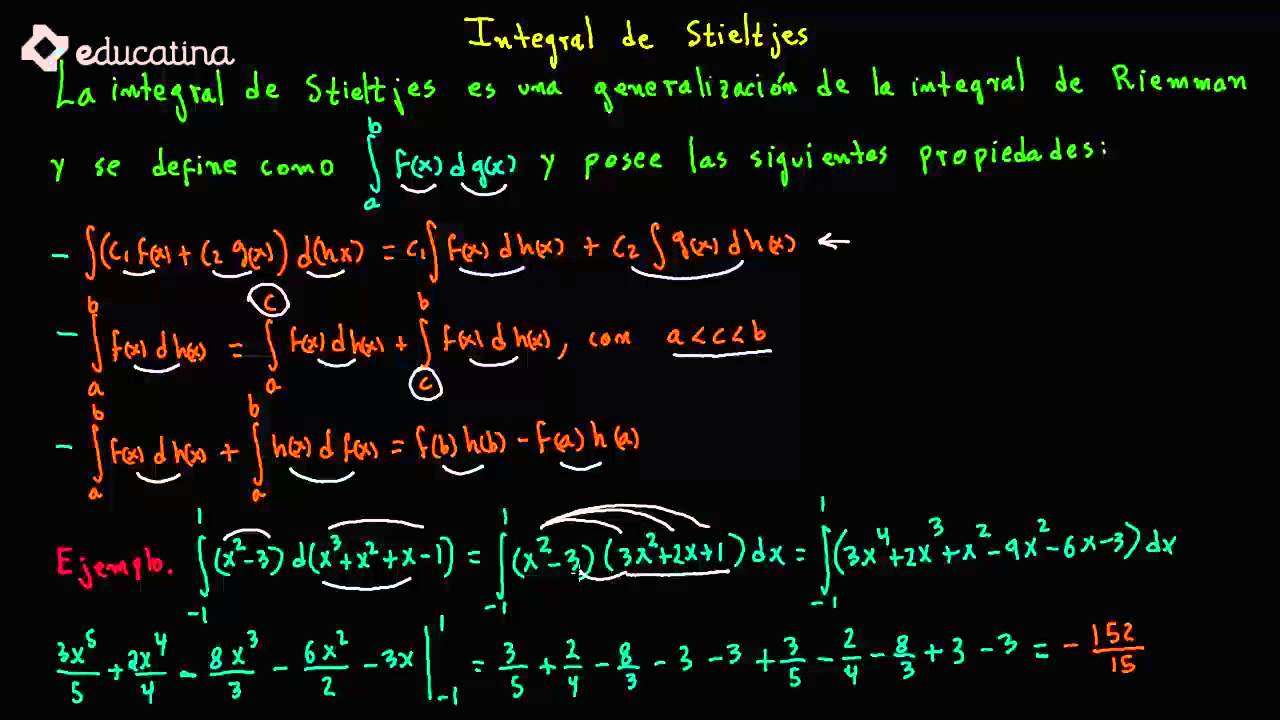 educatina
Integral de Stieltjes
La integral de Stieltjes es una generalización de la integral de Riemman
y se define como ∫_a^b f(x) d g(x) y posee las siguientes propiedades:
- ∫(c₁ f(x) + c₂ g(x)) d(hx) = c₁ ∫ f(x) d h(x) + c₂ ∫ g(x) d h(x) ←
- ∫_a^b f(x) d h(x) = ∫_a^c f(x) d h(x) + ∫_c^b f(x) d h(x), con a < c < b
- ∫_a^b f(x) d h(x) + ∫_a^b h(x) d f(x) = f(b) h(b) - f(a) h(a)
Ejemplo. ∫_-1^1 (x²-3) d(x³+x²+x-1) = ∫_-1^1 (x²-3)(3x²+2x+1) dx = ∫_-1^1 (3x⁴+2x³+x²-9x²-6x-3) dx
3x⁵/5 + 2x⁴/4 - 8x³/3 - 6x²/2 - 3x |_-1^1 = 3/5 + 2/4 - 8/3 - 3 - 3 + 3/5 - 2/4 - 8/3 + 3 - 3 = - 152/15